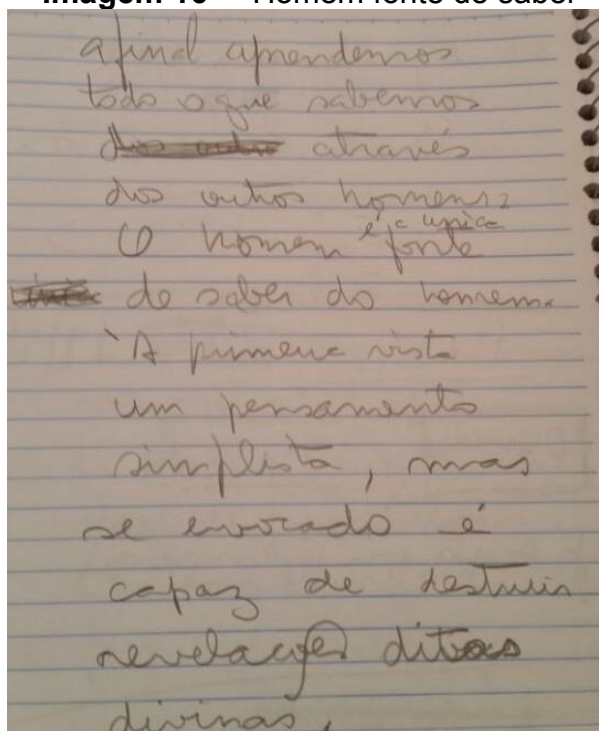 Homem fonte do saber
afinal aprendemos
todo o que sabemos
dos outro através
dos outros homens?
O homem é a unica fonte
de saber do homem.
À primeira vista
um pensamento
simplista, mas
se evocado é
capaz de destruir
revelações ditas
divinas,